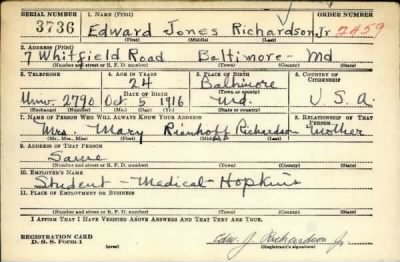 SERIAL NUMBER 1. NAME (Print) ORDER NUMBER
3736 Edward Jones Richardson, Jr 2459
(First) (Middle) (Last)
2. ADDRESS (Print)
7 Whitfield Road Baltimore - Md
(Number and street or R. F. D. number) (Town) (County) (State)
3. TELEPHONE 4. AGE IN YEARS 5. PLACE OF BIRTH 6. COUNTRY OF CITIZENSHIP
24 Baltimore
DATE OF BIRTH (Town or county)
Univ. 2790 Oct 5 1916 Md. U.S.A
(Exchange) (Number) (Mo.) (Day) (Yr.) (State or country)
7. NAME OF PERSON WHO WILL ALWAYS KNOW YOUR ADDRESS 8. RELATIONSHIP OF THAT PERSON
Mrs. Mary Rienhoff Richardson Mother
(Mr., Mrs., Miss) (First) (Middle) (Last)
9. ADDRESS OF THAT PERSON
Same
(Number and street or R. F. D. number) (Town) (County) (State)
10. EMPLOYER'S NAME
Student - Medical - Hopkins
11. PLACE OF EMPLOYMENT OR BUSINESS
(Number and street or R. F. D. number) (Town) (County) (State)
I AFFIRM THAT I HAVE VERIFIED ABOVE ANSWERS AND THAT THEY ARE TRUE.
REGISTRATION CARD
D. S. S. Form 1 (over) Edw. J. Richardson Jr
(Registrant's signature)